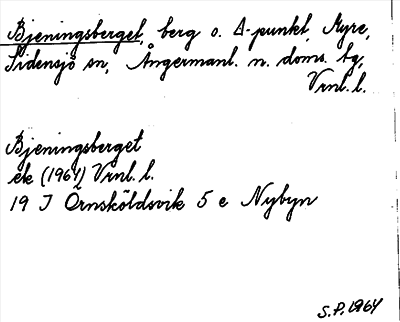 Bjeningsberget, berg o. Δ-punkt, Myre,
Sidensjö sn, Ångermanl. n. doms. tg,
Vrnl. l.
Bjeningsberget
ek (1964) Vrnl. l.
19 J Örnsköldsvik 5 e Nybyn
S.P. 1964